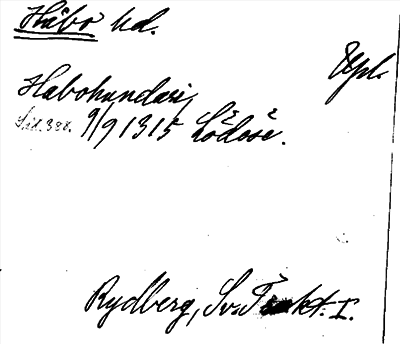 Håbo hd.
Upl.
Habohundari,
Sid. 388. 9/9 1315 Lödöse.
Rydberg, Sv. Trakt. I.